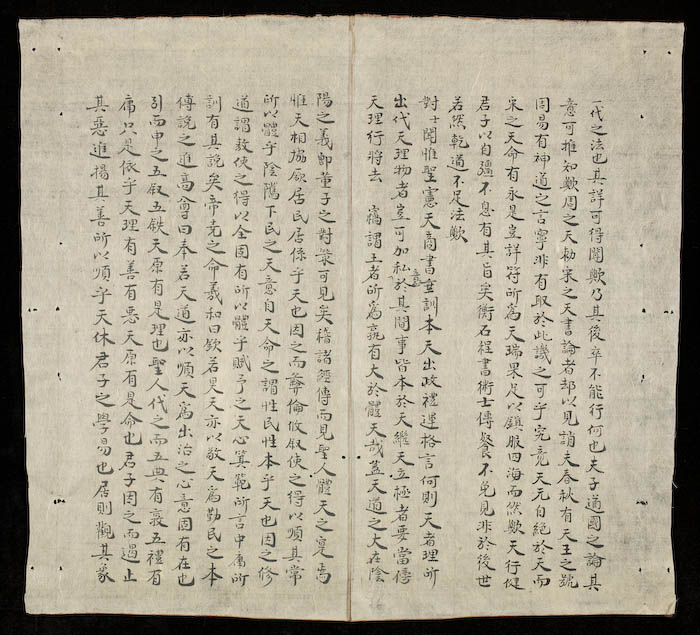 一代之法也其詳可得聞歟乃其後卒不能行何也夫子道國之論其
意可推知歟周之天勑宋之天書論者却以見誚夫春秋有天王之號
周易有神道之言寧非有取於此譏之可乎究竟天元自絕於天而
宋之天命有永是豈詳符所為天瑞果足以鎮服四海而然歟天行健
君子以自彊不息有其旨矣衡石程書術士傳餐不免見非於後世
若然乾道不足法歟
對士聞惟聖憲天商書垂訓本天出政禮運格言何則天者理所
出代天理物者豈可加私意於其間事皆本於天繼天立極者要當循
天理行將去 竊謂王者所為孰有大於體天哉蓋天道之大在陰
陽之義即董子之對策可見矣稽諸經傳而見聖人體天之寔焉
惟天相協厥居民居係乎天也因之而彞倫攸叙使之得以順其常
所以體乎陰隲下民之天意自天命之謂性民性本乎天也因之修
道謂教使之得以全固有所以體乎賦予之天心箕範所言中庸所
訓有其說矣帝堯之命羲和曰欽若昊天亦以敬天為勤民之本
傳說之進高曾曰奉若天道亦以順天為出治之心意固有在也
引而申之五叙五秩天原有是理也聖人代之而五典有敦五禮有
庸只是依乎天理有善有惡天原有是命也君子因之而遏止
其惡進揚其善所以順乎天休君子之學易也居則觀其象